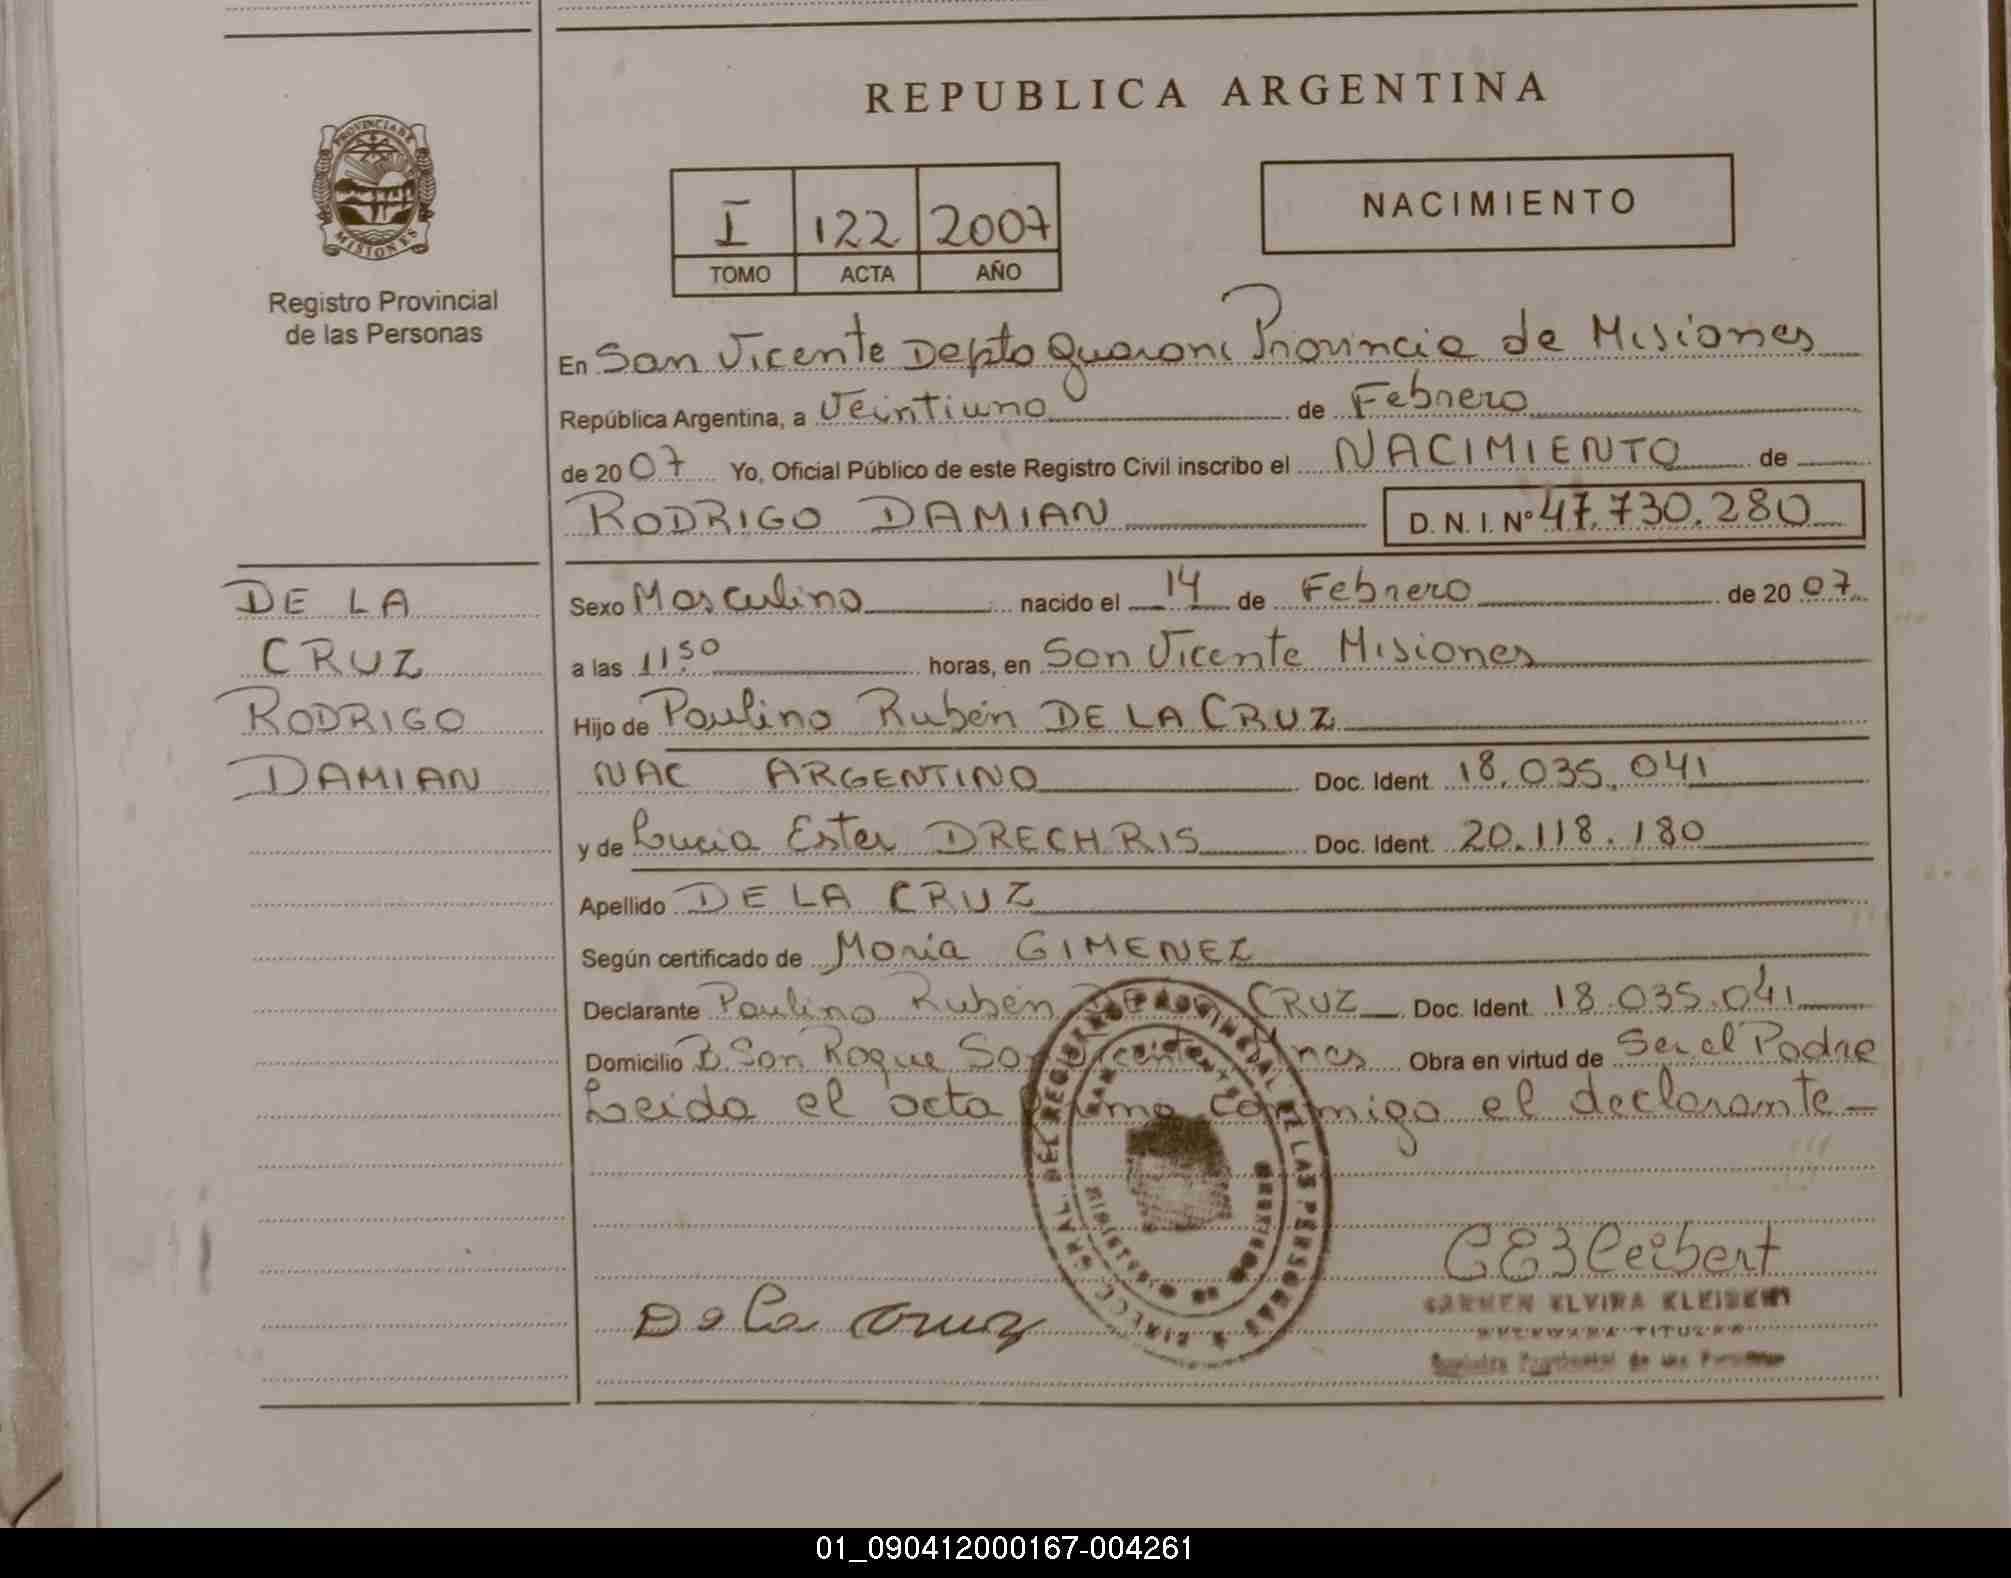 REPUBLICA ARGENTINA
PROVINCIA DE
MISIONES
Registro Provincial
de las Personas
I 122 2007
TOMO ACTA AÑO
NACIMIENTO
En San Vicente Depto Guarani Provincia de Misiones
República Argentina, a Veintiuno de Febrero
de 2007 Yo, Oficial Público de este Registro Civil inscribo el NACIMIENTO de
RODRIGO DAMIAN D. N. I. Nº 47.730.280
DE LA
CRUZ
RODRIGO
DAMIAN
Sexo Masculino nacido el 14 de Febrero de 2007
a las 11:50 horas, en San Vicente Misiones
Hijo de Paulino Rubén DE LA CRUZ
NAC ARGENTINO Doc. Ident. 18.035.041
y de Lucia Ester DRECHRIS Doc. Ident. 20.118.180
Apellido DE LA CRUZ
Según certificado de Maria GIMENEZ
Declarante Paulino Rubén DE LA CRUZ Doc. Ident. 18.035.041
Domicilio B. San Roque San Vicente Mnes Obra en virtud de Ser el Padre
Leida el acta firma conmigo el declarante
DIRECC. GRAL. DEL REGISTRO PROVINCIAL DE LAS PERSONAS
SAN VICENTE
MISIONES
De la Cruz
CEKleibert
CARMEN ELVIRA KLEIBERT
TITULAR
Registro Provincial de las Personas
01_090412000167-004261